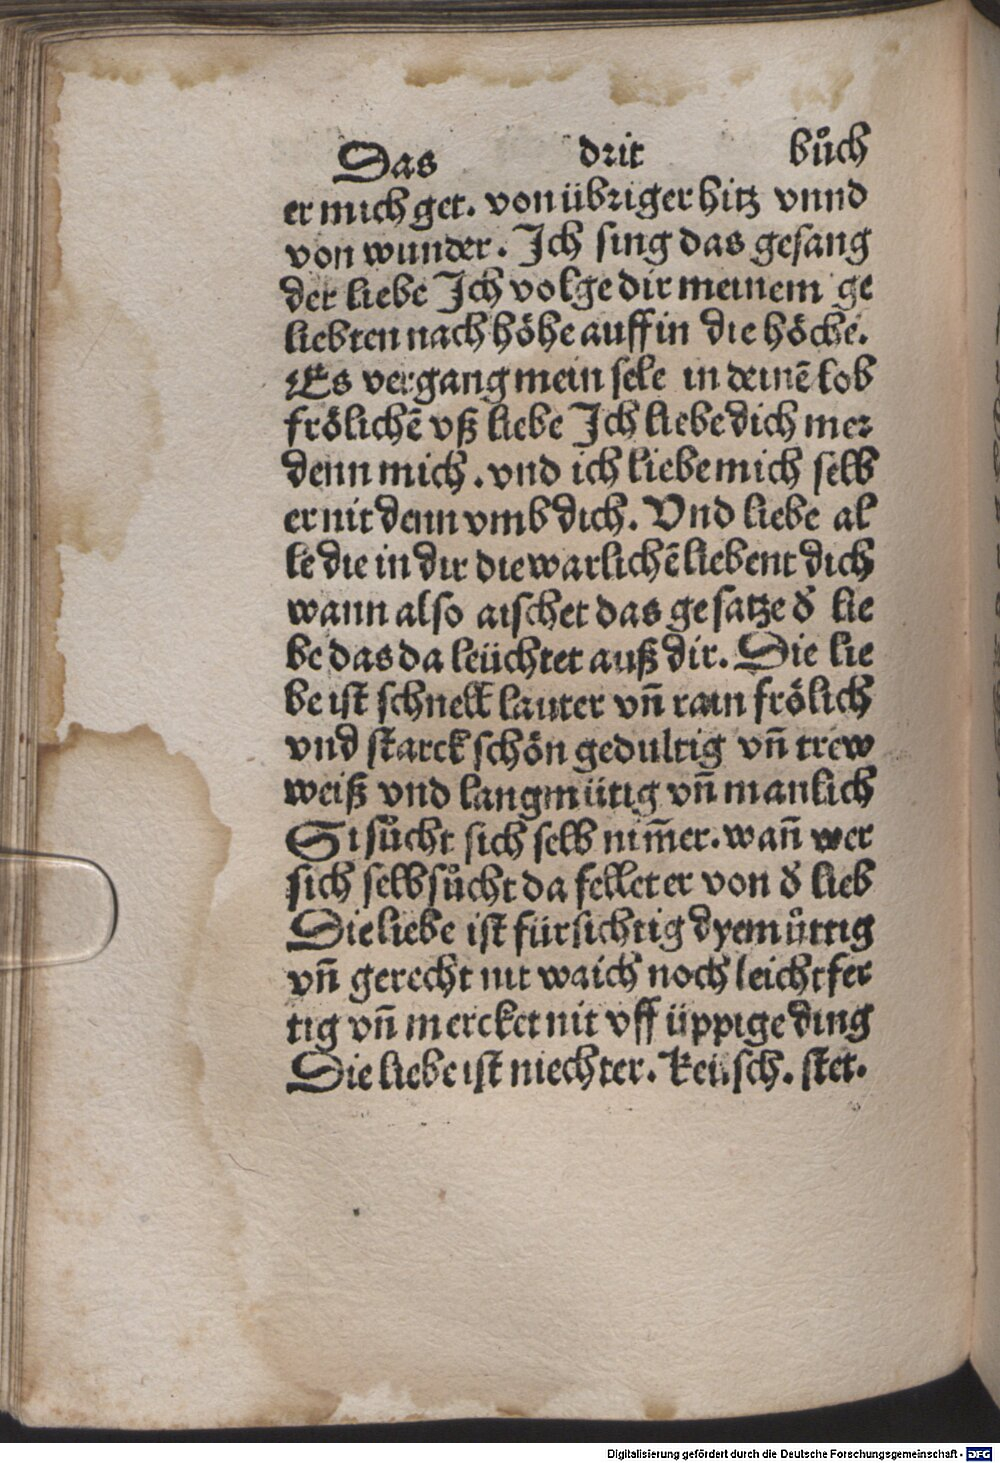 Das drit bůch
er mich get. von übriger hitz vnnd
von wunder. Ich sing das gesang
der liebe Ich volge dir meinem ge
liebten nach höhe auff in die höche.
Es vergang mein sele in deinē lob
frölichē vß liebe Ich liebe dich mer
denn mich. vnd ich liebe mich selb
er nit denn vmb dich. Vnd liebe al
le die in dir die warlichē liebent dich
wann also aischet das gesatze d̄ lie
be das da leüchtet auß dir. Die lie
be ist schnell lauter vn̄ rain frölich
vnd starck schön gedultig vn̄ trew
weiß vnd langmütig vn̄ manlich
Si sůcht sich selb nim̄er. wan̄ wer
sich selb sůcht da fellet er von d̄ lieb
Die liebe ist fürsichtig dyemůttig
vn̄ gerecht nit waich noch leichtfer
tig vn̄ mercket nit vff üppige ding
Die liebe ist niechter. keüsch. stet.
Digitalisierung gefördert durch die Deutsche Forschungsgemeinschaft - DFG